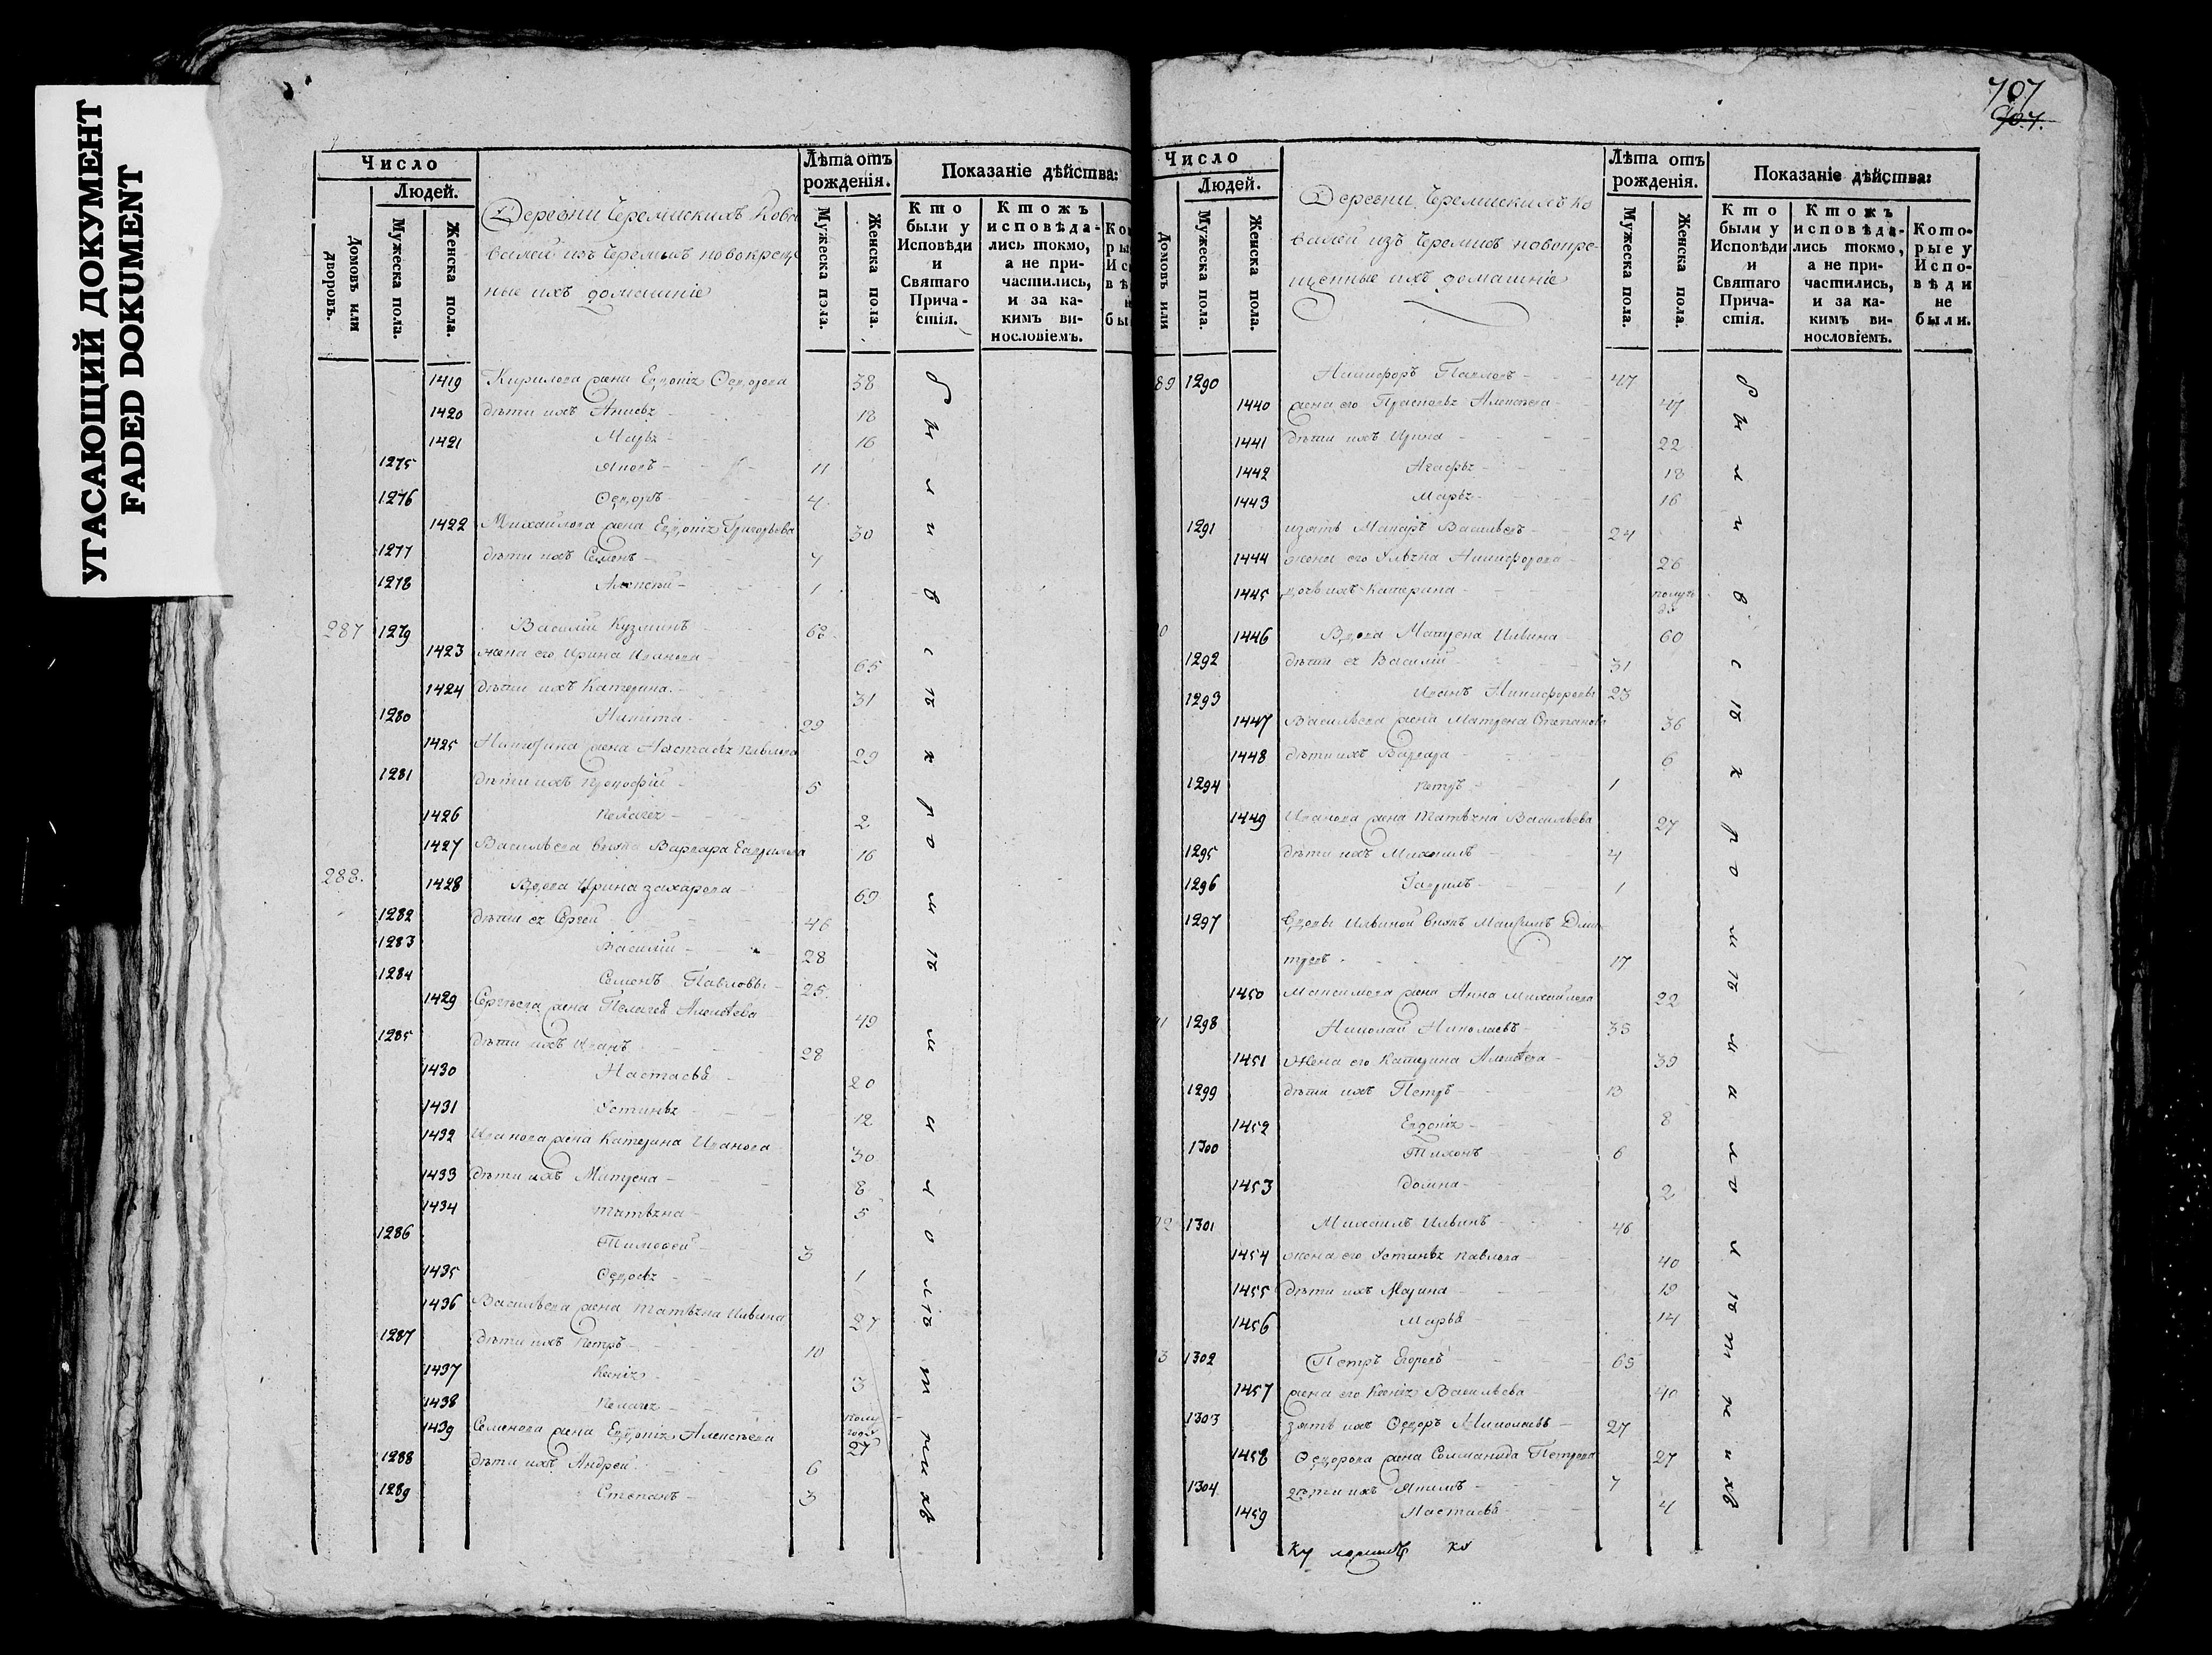 УГАСАЮЩИЙ ДОКУМЕНТ
FADED DOKUMENT
Число
Людей.
Домовъ или дворовъ.
Мужеска пола.
Женска пола.
Деревни Черемискихъ Кова
валей изъ Черемисъ новокрещ
ные ихъ домашніе
Лѣта отъ рожденія.
Мужеска пола.
Женска пола.
Показаніе дѣйства:
Кто были у Исповѣди и Святаго Причастія.
Ктожъ исповѣдались токмо, а не причастились, и за какимъ винословіемъ.
1419 Кирилова жена Евдокія Ѳедорова 38
1420 дѣти ихъ Анисья 18
1421 Марья 16
1275 Яковъ 11
1276 Ѳедоръ 4
1422 Михайлова жена Евдокія Григорьева 30
1277 дѣти ихъ Семенъ 4
1278 Алексѣй 1
287 1279 Василій Кузминъ 62
1423 жена его Ирина Иванова 65
1424 дѣти ихъ Катерина 31
1280 Никита 29
1425 Никитина жена Настасья павлова 29
1281 дѣти ихъ прокофій 5
1426 пелагея 2
1427 Васильева внука Варвара Гаврилова 16
288. 1428 Вдова Ирина захарова 69
1282 дѣти ея Сергей 46
1283 Василій 28
1284 Семенъ Павловы 25
1429 Сергѣева жена Пелагея Алексѣева 49
1285 дѣти ихъ Иванъ 28
1430 Настасья 20
1431 Устинья 12
1432 Иванова жена Катерина Иванова 30
1433 дѣти ихъ Матрена 8
1434 татьяна 5
1286 Тимоѳей 3
1435 Ѳедосья 1
1436 Васильева жена татьяна Ильина 27
1287 дѣти ихъ петръ 10
1437 Ксенія 3
1438 пелагея полу года
1439 Семенова жена Евдокія Алексѣева 27
1288 дѣти ихъ Андрей 6
1289 Степанъ 3
707
907.
Число
Людей.
Домовъ или
Мужеска пола.
Женска пола.
Деревни Черемискихъ Ко
валей изъ Черемисъ новокре-
щенные ихъ домашніе
Лѣта отъ рожденія.
Мужеска пола.
Женска пола.
Показаніе дѣйства:
Кто были у Исповѣди и Святаго Причастія.
Ктожъ исповѣдались токмо, а не причастились, и за какимъ винословіемъ.
Которые у Исповѣди не были.
89 1290 Никифоръ Павловъ 47
1440 жена его Прасковья Алексѣева 47
1441 дѣти ихъ Ирина 22
1442 Агафья 18
1443 Марья 16
1291 изять Макаръ Васильевъ 24
1444 жена его Ульяна Никифорова 26
1445 дочь ихъ Катерина полуго да
0 1446 Вдова Матрена Ильина 60
1292 дѣти ея Василій 31
1293 Иванъ Никифоровы 23
1447 Васильева жена Матрена Степанова 36
1448 дѣти ихъ Варвара 6
1294 петръ 1
1449 Иванова жена татьяна Васильева 27
1295 дѣти ихъ Михаилъ 4
1296 Гаврилъ 1
1297 Вдовы Ильиной внукъ Максимъ Дми
тревъ 17
1450 Максимова жена Анна михайлова 22
91 1298 Николай Николаевъ 35
1451 Жена его Катерина Алексѣева 39
1299 дѣти ихъ Петръ 13
1452 Евдокія 8
1300 Тихонъ 6
1453 домна 2
92 1301 Михаилъ Ильинъ 46
1454 жена его Устинья павлова 40
1455 дѣти ихъ Марина 19
1456 Марья 14
93 1302 Петръ Егоровъ 65
1457 жена его Ксенія Васильева 40
1303 зять ихъ Ѳедоръ Николаевъ 27
1458 Ѳедорова жена Соломанида Петрова 27
1304 дѣти ихъ Якимъ 7
1459 Настасья 4